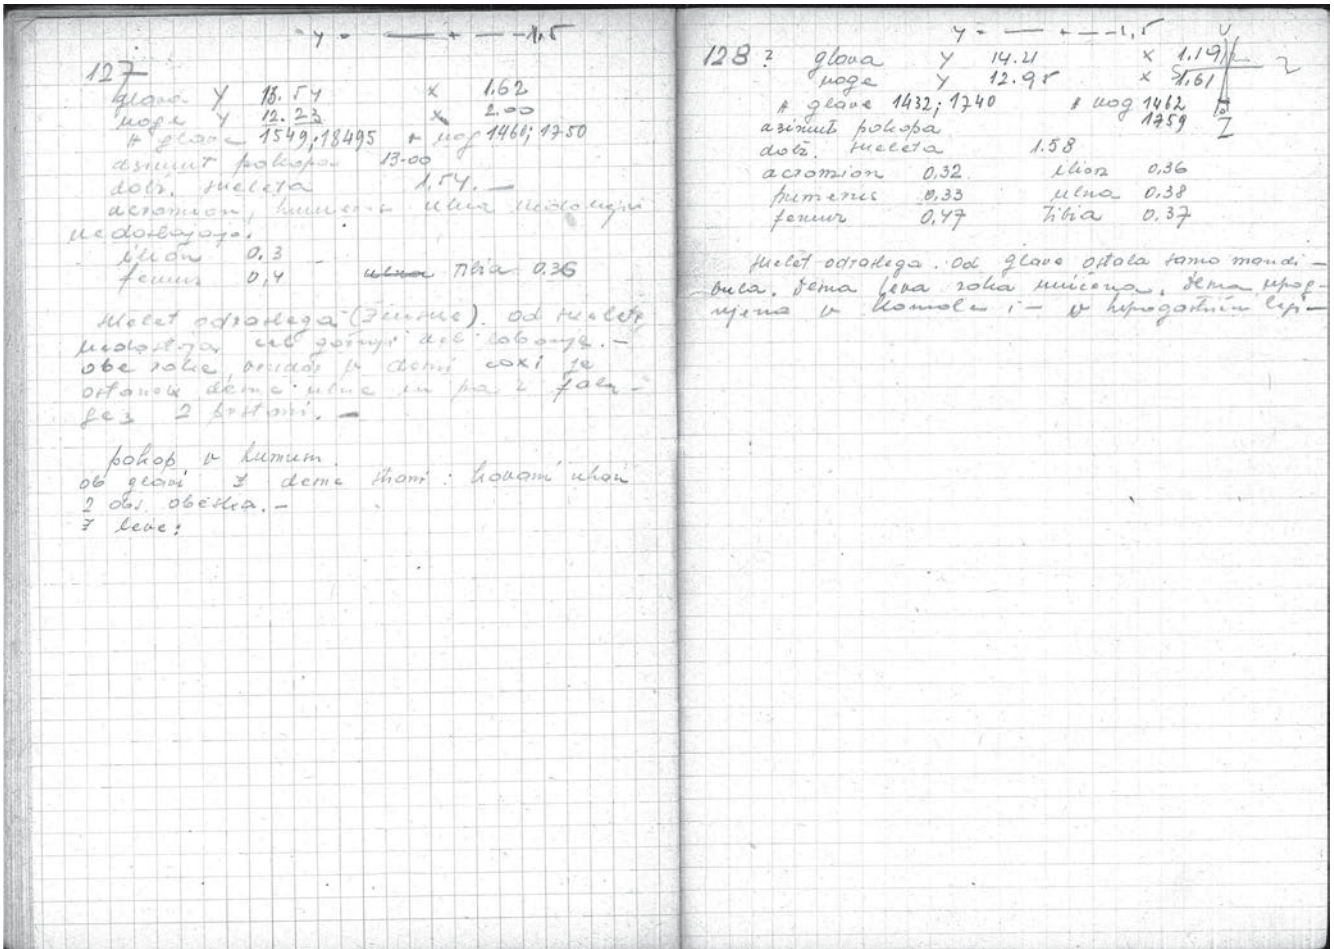 y = — + — -1,5
127
glava Y 13.54 X 1.62
noge Y 12.23 X 2.00
glave 1549; 18495 nog 1460; 1750
azimut pokopa 13-00
dolž. skeleta 1.54. —
acromion, humerus ulna
ne dostajajo.
ilion 0.3
femur 0,4 Tibia 0.36
skelet odraslega (ženske). od skeleta
gornji del lobanje. —
obe roke, v desni coxi je
ostanek desne ulne in pa 2 falan-
ge z 2 prstani. —
pokop v humum.
ob glavi z desne strani: kovani uhan
2 obs. obeska. —
z leve:
y = — + — -1,5
128? glava Y 14.21 X 1.19
noge Y 12.95 X 1.61
glave 1432; 1740 nog 1462
1759
azimut pokopa
dolž. skeleta 1.58
acromion 0.32 ilion 0.36
humerus 0.33 ulna 0.38
femur 0.47 Tibia 0.37
skelet odraslega. Od glave ostala samo mandi-
bula. desna leva roka uničena, desna upog-
njena v komolcu i — v